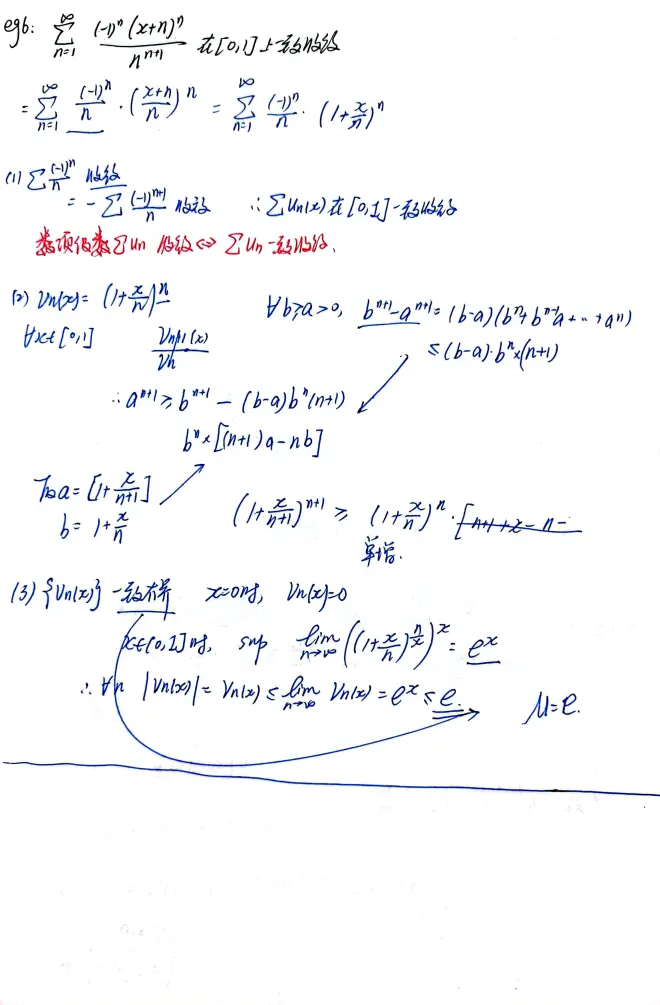 eg6: ∑_{n=1}^{∞} \frac{(-1)^n (x+n)^n}{n^{n+1}} 在[0,1]上一致收敛
= ∑_{n=1}^{∞} \frac{(-1)^n}{n} · (\frac{x+n}{n})^n = ∑_{n=1}^{∞} \frac{(-1)^n}{n} · (1+\frac{x}{n})^n
(1) ∑\frac{(-1)^n}{n} 收敛
= -∑\frac{(-1)^{n+1}}{n} 收敛 ∴∑Un(x)在[0,1]一致收敛
数项级数∑Un 收敛⇔∑Un一致收敛.
(2) Vn(x)= (1+\frac{x}{n})^n ∀b≥a>0, b^{n+1}-a^{n+1}=(b-a)(b^n+b^{n-1}a+…+a^n)
∀x∈[0,1] \frac{V_{n+1}(x)}{Vn} ≤(b-a)·b^n×(n+1)
∴a^{n+1}≥b^{n+1}-(b-a)b^n(n+1)
b^n×[(n+1)a-nb]
a=[1+\frac{x}{n+1}]
b=1+\frac{x}{n} (1+\frac{x}{n+1})^{n+1} ≥ (1+\frac{x}{n})^n·[n+1+x-n-
单增.
(3) {Vn(x)} 一致有界 x=0时, Vn(x)=0
x∈(0,1]时, sup lim_{n→∞}((1+\frac{x}{n})^{\frac{n}{x}})^x = e^x
∴∀n |Vn(x)|=Vn(x)≤lim_{n→∞} Vn(x)=e^x≤e. M=e.